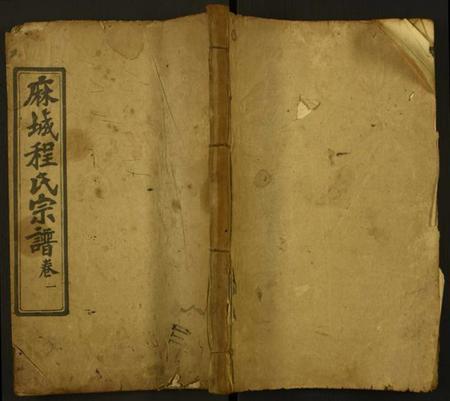 麻城程氏宗譜
卷一